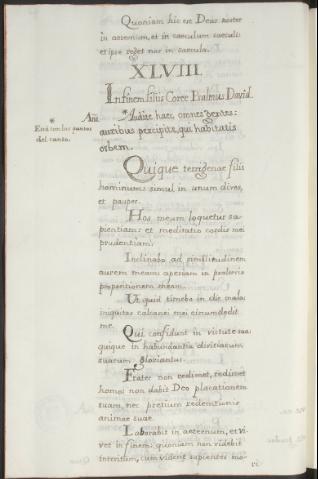 Quoniam hic est Deus noster
in aeternum, et in saeculum saeculi:
et ipse reget nos in saecula.
XLVIII.
In finem filiis Core Psalmus David.
Añ * Audite haec omnes gentes:
* auribus percipite, qui habitatis
orbem.
Quique terrigenae filii
hominum: simul in unum dives,
et pauper.
Hos meum loquetur sa-
pientiam: et meditatio cordis mei
prudentiam:
Inclinabo ad similitudinem
aurem meam: aperiam in psalterio
propositionem meam.
Ut quid timebo in die mala:
iniquitas calcanei mei circumdedit
me.
Qui confidunt in virtute sua:
quique in habundantia divitiarum
suarum gloriantur.
Frater non redimet, redimet
homo: non dabit Deo placationem
suam, nec pretium redentionis
animae suae.
Laborabit in aeternum, et vi-
vet in finem: quoniam non videbit
interitum, cum viderit sapientes mo-
ri